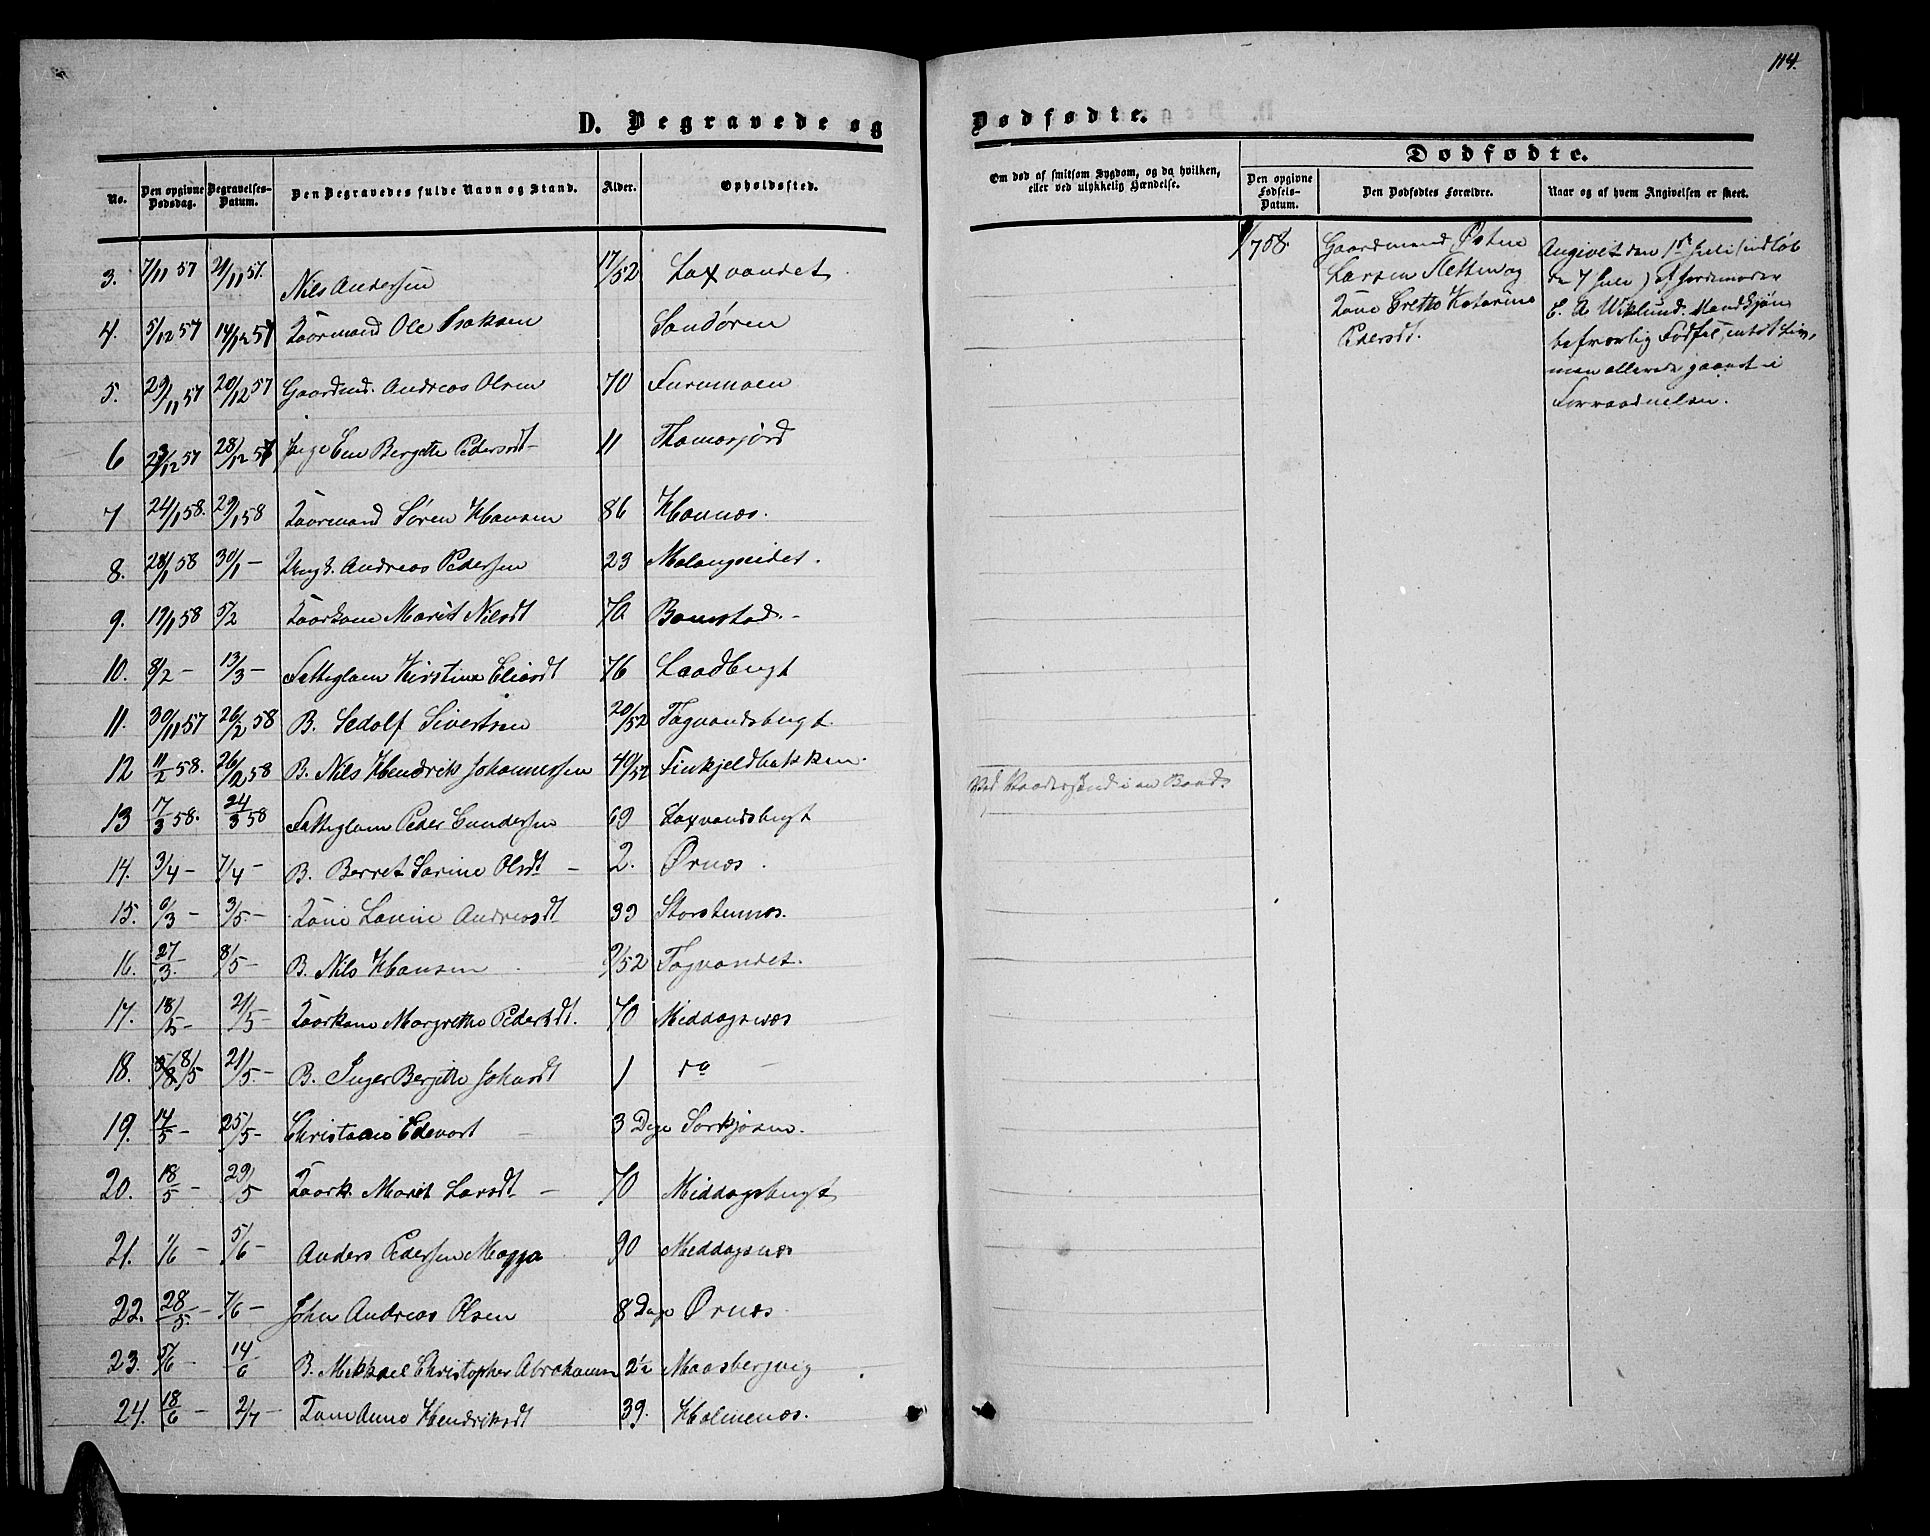 114.
D. Begravede og Dødfødte.
No.
Den opgivne Dødsdag.
Begravelses-Datum.
Den Begravedes fulde Navn og Stand.
Alder.
Opholdssted.
Om død af smitsom Sygdom, og da hvilken, eller ved ulykkelig Hændelse.
Dødfødte.
Den opgivne Fødsels-Datum.
Den Dødfødtes Forældre.
Naar og af hvem Angivelsen er skeet.
3. 7/11 57 21/11 57. Nils Andersen 17/52 Laxvandet
4. 5/12 57 14/12 57 Isaksen Ole Sandøren
5. 29/11 57 20/12 57 Gaardmd. Andreas Olsen 70 Furumoen
6 23/12 57 28/12 57 Pige Ane Bergitte Pedersdt 11 Thomasjord
7 24/1 58. 29/1 58 Søren Hansen 86 Havnæs.
8. 28/1 58 30/1 - Ungk. Andreas Pedersen 23 Malangseidet.
9. 19/1 58 5/2 Marit Nilsdt 70 Bomstad.
10. 8/2 - 13/3 - Fattiglem Kirstine Eliasdt 76 Laadbugt
11. 30/11 57 26/2 58 B. Sedolf Sivertsen 20/52 Tagvandsbugt.
12 11/2 58. 26/2 58 B. Nils Hendrik Johannessen 40/52 Finkjeldbakken.
13 17/3 58. 24/3 58 Fattiglem Peder Gundersen 69 Laxvandsbugt
14. 3/4 - 7/4 - B. Berret Sarine Olsdt - 2. Ørnæs.
15. 6/3 - 3/5. - Kone Lavine Andreasdt 33 Storstennæs.
16. 27/3. 8/5 - B. Nils Hansen 9/52 Tagvandet.
17. 18/5 - 21/5 - Margrethe Pedersdt. 70 Middagsnæs
18. 8/5 21/5. - B. Inger Bergitte Johansdt 1 do
19. 14/5 - 25/5 - Christian Edevart 3 Dage Sørkjosen.
20. 18/5 - 29/5 Marit Larsdt - 70 Middagsbugt
21. 1/6 - 5/6 - Anders Pedersen Magga 90 Middagsnæs
22. 28/5. - 7/6 - John Andreas Olsen 8 Dage Ørnæs.
23. 5/6 - 14/6 B. Mikkael Christopher Abrahamsen 2½ Maasbergvig
24. 18/6 - 2/7 - Kone Anne Hendriksdt 39. Holmenæs.
i en Baad.
1/7 58.
Gaardmand Østen
Larsen Sletten og
Kone Grethe Katarina
Pedersdt.
Angivet den 1ste Juli (indløb
de 7 Juli) af Jordemoder
E. A. Wiklund. Mandkjøn
Fødsel, intet Liv,
men allerede gaaet i
Forraadnelsen.